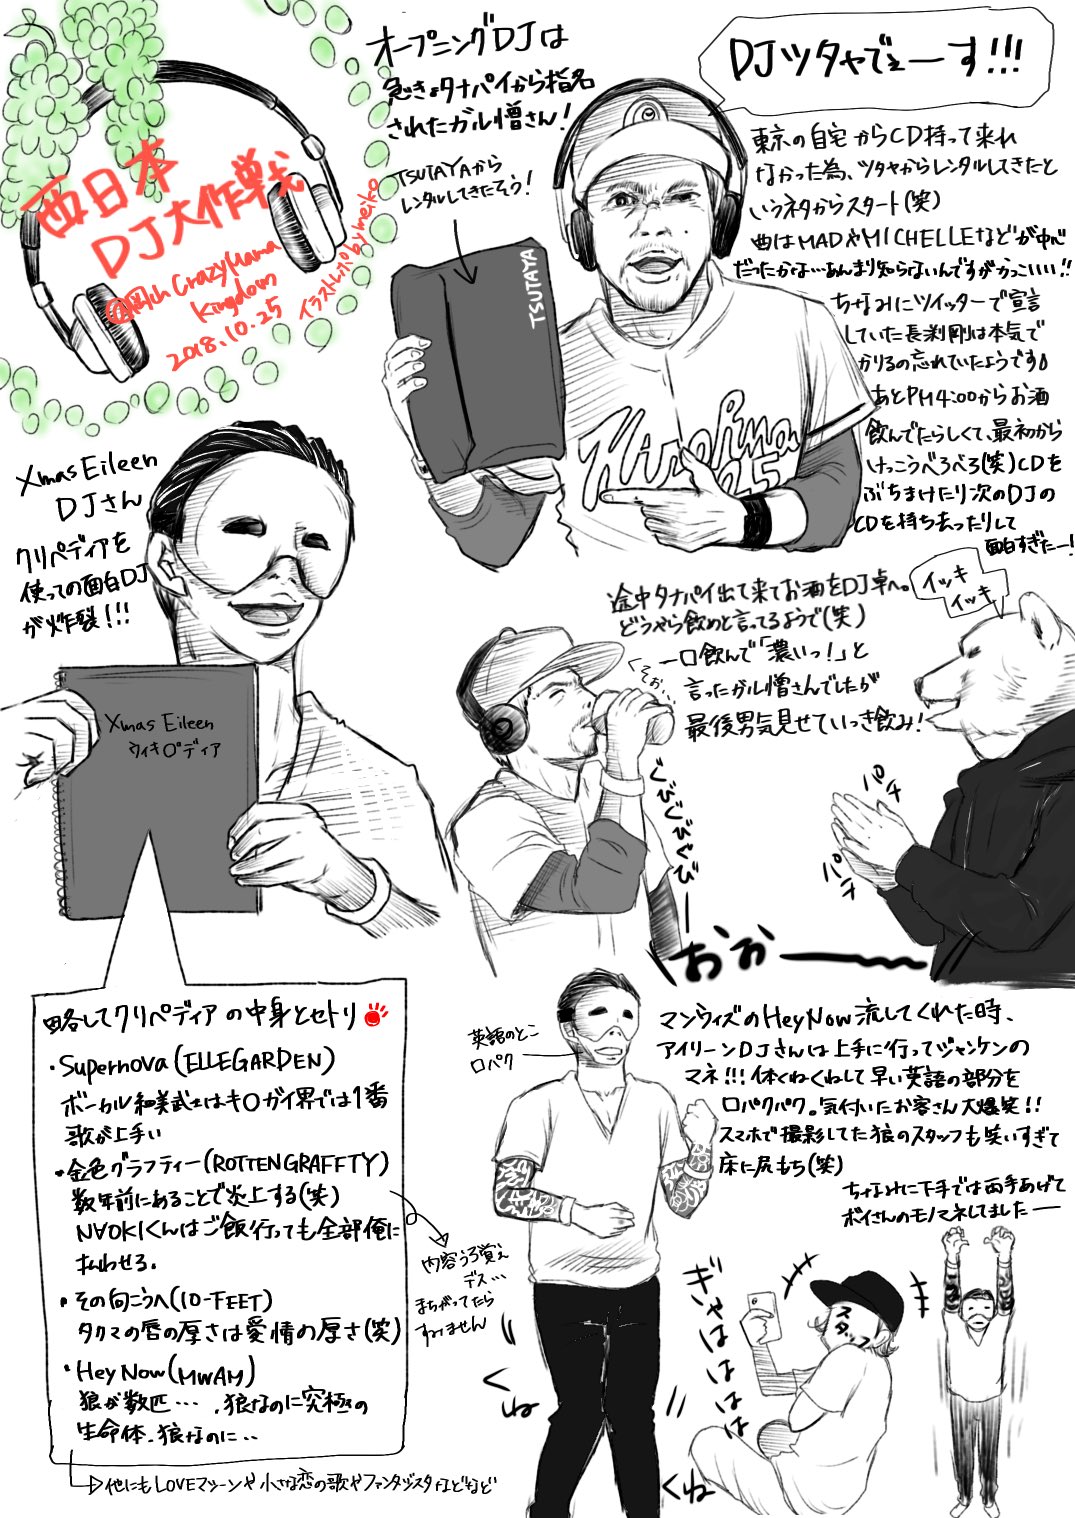 西日本
DJ大作戦
@4th Crazy Mama
Kingdom
2018.10.25
イラストレポ by meiko
オープニングDJは
急きょタナパイから指名
されたガル憎さん!
TSUTAYAから
レンタルしてきたそう!
TSUTAYA
DJツタヤでぇーす!!!
東京の自宅からCD持って来れ
なかった為、ツタヤからレンタルしてきたと
いうネタからスタート(笑)
曲はMADやMICHELLEなどが中心
だったかな…あんまり知らないんですがかっこいい!!
ちなみにツイッターで宣言
していた長渕剛は本気で
かりるの忘れていたようです♪
あとPM4:00からお酒
飲んでたらしくて、最初から
けっこうべろべろ(笑)CDを
ぶちまけたり次のDJの
CDを持ち去ったりして
面白すぎたー!
Hiroshima
25
Xmas Eileen
DJさん
クリペディアを
使っての面白DJ
が炸裂!!!
Xmas Eileen
ウィキ〇ペディア
途中タナパイ出て来てお酒をDJ卓へ。
どうやら飲めと言ってるようで(笑)
一口飲んで「濃いっ!」と
言ったガル憎さんでしたが
最後男気見せていっき飲み!
イッキ
イッキ
ぐびぐびぐびぐびー
パチ
パチ
おおーーー
略してクリペディアの中身とセトリ
・Supernova(ELLEGARDEN)
ボーカル細美武士はキ〇ガイ界では1番
歌が上手い
・金色グラフティー(ROTTENGRAFFTY)
数年前にあることで炎上する(笑)
NAOKIくんはご飯行っても全部俺に
払わせる。
・その向こうへ(10-FEET)
タクマの唇の厚さは愛情の厚さ(笑)
・Hey Now(MWAM)
狼が数匹…、狼なのに究極の
生命体、狼なのに‥
他にもLOVEマシーンや小さな恋の歌やファンタジスタなどなど
内容うろ覚え
デス…
まちがってたら
すみません
英語のとこ
口パク
マンウィズのHey Now流してくれた時、
アイリーンDJさんは上手に行ってジャンケンの
マネ!!!体くねくねして早い英語の部分を
口パクパク。気付いたお客さん大爆笑!!
スマホで撮影してた狼のスタッフも笑いすぎて
床に尻もち(笑)
ちなみに下手では両手あげて
ボイさんのモノマネしてましたー
くね
くね
ぎゃはははは
スタッフ